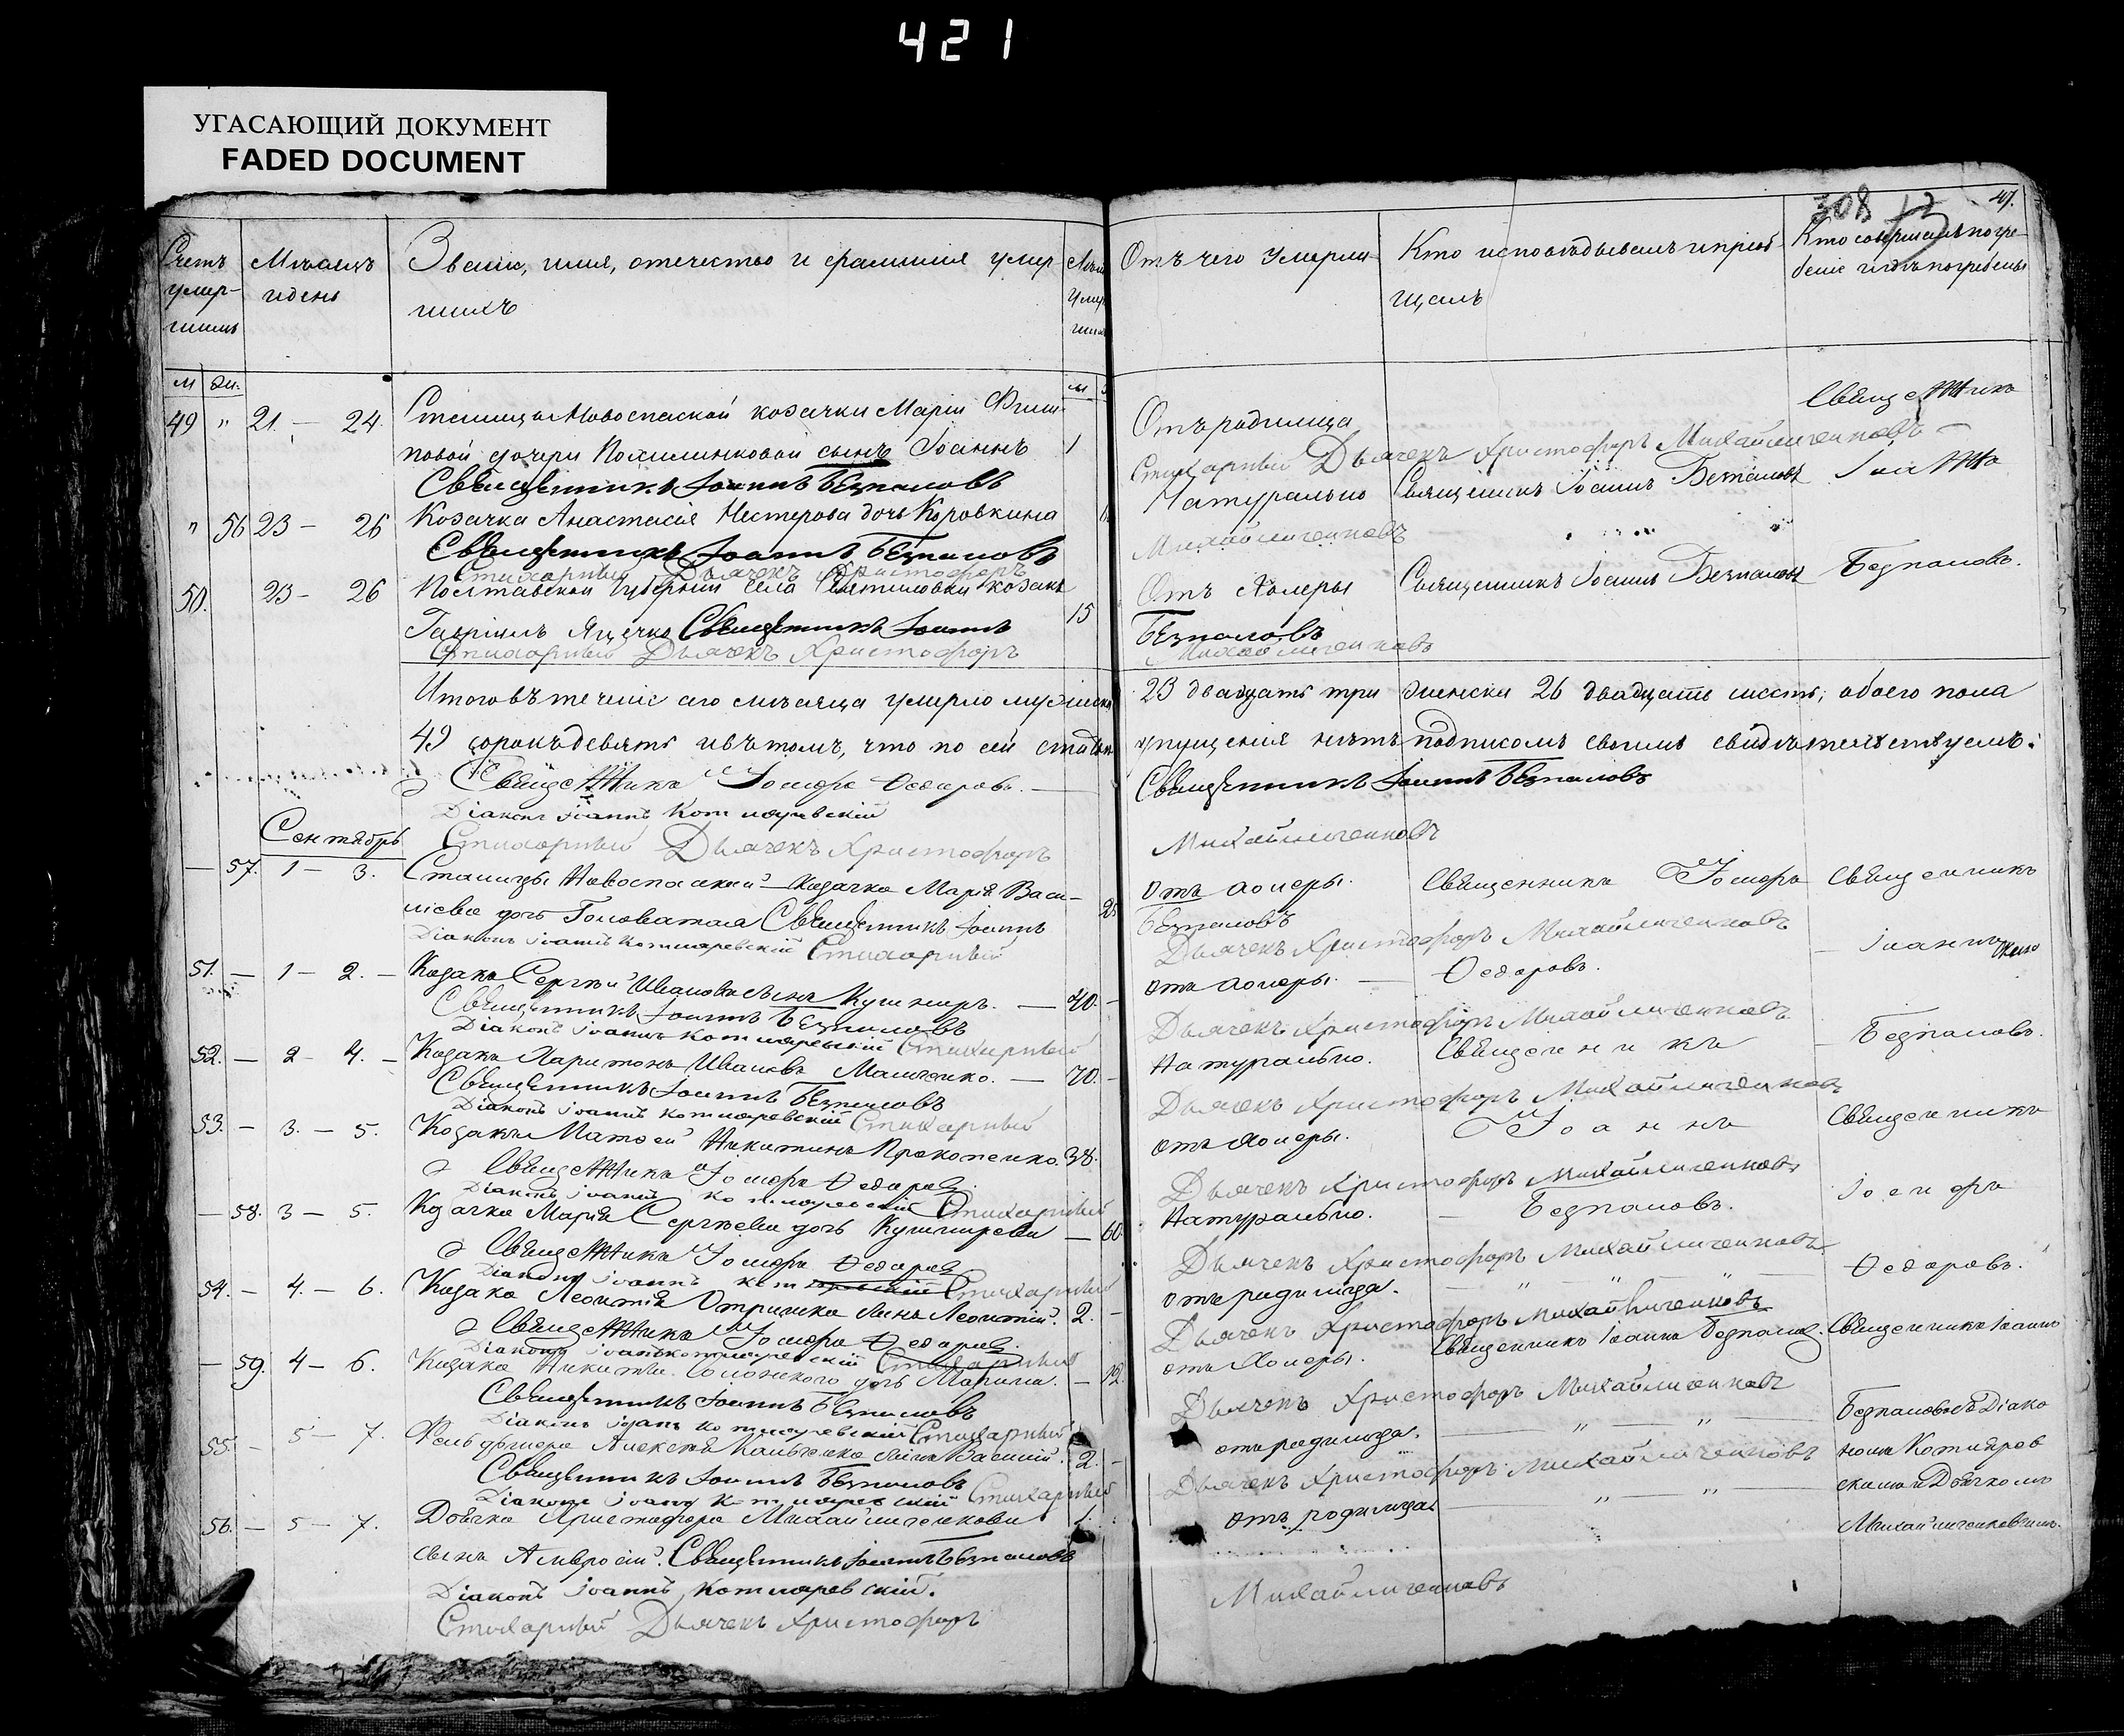 421
УГАСАЮЩИЙ ДОКУМЕНТ
FADED DOCUMENT
308 47.
Счетъ умер-шихъ
Мѣсяцъ и день
Званіе, имя, отечество и фамилія умер
шихъ
Лѣта умер шихъ
Отъ чего умерли
Кто исповѣдывалъ и пріоб
щалъ
Кто совершалъ погре-
беніе и гдѣ погребены
м
м
49 " 21 — 24 Станицы Новоспаской козачки Маріи Филип-
повой дочери сынъ Іоаннъ 1
Отъ родимца
СвященНикъ
Священникъ Іоаннъ Безпаловъ
Стихарный Дьячекъ Христофоръ Михайличенковъ —
" 56 23 — 26 Козачка Анастасія Нестерова дочь Коровкина
Натурально Священникъ Іоаннъ Безпаловъ Іоаннъ
Священникъ Іоаннъ Безпаловъ
Стихарный Дьячекъ Христофоръ
Михайличенковъ
50. 23 — 26 Полтавской Губерніи села козакъ
Гавріилъ Яценко 15
Отъ холеры Священникъ Іоаннъ Безпаловъ Безпаловъ.
Священникъ Іоаннъ Безпаловъ
Стихарный Дьячекъ Христофоръ Михайличенковъ
Итого въ теченіе сего мѣсяца умерло мужеска 23 двадцать три женска 26 двадцать шесть, обоего пола
49 сорокъ девять и въ томъ, что по сей упущенія нѣтъ подписомъ своимъ свидѣтельствуемъ:
СвященНикъ Іосифъ Федоровъ. — Священникъ Іоаннъ Безпаловъ
Діаконъ Іоаннъ Котляревскій
Стихарный Дьячекъ Христофоръ Михайличенковъ
Сентябрь
— 57. 1 — 3. Станицы Новоспаской козачка Марія Васи-
ліева дочь Головатая
отъ холеры. Священникъ Іосифъ Священникъ
Священникъ Іоаннъ Безпаловъ
Діаконъ Іоаннъ Котляревскій Стихарный Дьячекъ Христофоръ Михайличенковъ
51. — 1 — 2. — Козакъ Сергѣй Ивановъ сынъ Кушниръ. — 40. —
отъ холеры. — Федоровъ. — Іоаннъ
Священникъ Іоаннъ Безпаловъ
Діаконъ Іоаннъ Котляревскій Стихарный Дьячекъ Христофоръ Михайличенковъ
52. — 2 — 4. — Козакъ Харитонъ Ивановъ — 70. —
Натурально. Священникъ — Безпаловъ.
Священникъ Іоаннъ Безпаловъ
Діаконъ Іоаннъ Котляревскій Стихарный Дьячекъ Христофоръ Михайличенковъ
53. — 3. — 5. Козакъ Матѳей Никитинъ Прокопенко. 38.
отъ холеры. Іоаннъ Священникъ
СвященНикъ Іосифъ Федоровъ
Діаконъ Іоаннъ Котляревскій Стихарный Дьячекъ Христофоръ Михайличенковъ
— 58. 3 — 5. Козачка Марія Сергѣева дочь Кушнирева — 60.
Натурально. — Безпаловъ. Іосифъ
СвященНикъ Іосифъ Федоровъ
Діаконъ Іоаннъ Котляревскій Стихарный Дьячекъ Христофоръ Михайличенковъ
54. — 4. — 6. Козака Леонтія Отришка сынъ Леонтій. 2. —
отъ родимца. — " — " — " — Федоровъ.
СвященНикъ Іосифъ Федоровъ
Діаконъ Іоаннъ Котляревскій Стихарный Дьячекъ Христофоръ Михайличенковъ
— 59. 4 — 6. Козака Никиты дочь Марина. — 12.
отъ холеры. Священникъ Іоаннъ Безпаловъ. Священникъ Іоаннъ
Священникъ Іоаннъ Безпаловъ
Діаконъ Іоаннъ Котляревскій Стихарный Дьячекъ Христофоръ Михайличенковъ
55. — 5 — 7. Фельдшера Алексѣя сынъ Василій. 2. —
отъ родимца. — " — " — Безпаловъ съ Діако
Священникъ Іоаннъ Безпаловъ
Діаконъ Іоаннъ Котляревскій Стихарный Дьячекъ Христофоръ Михайличенковъ
номъ Котляров
скимъ и Дьячкомъ
56. — 5 — 7. Дьячка Христофора Михайличенкова 1.
сынъ Амвросій.
отъ родимца — " — " — Михайличенковымъ.
Священникъ Іоаннъ Безпаловъ
Діаконъ Іоаннъ Котляревскій.
Стихарный Дьячекъ Христофоръ Михайличенковъ